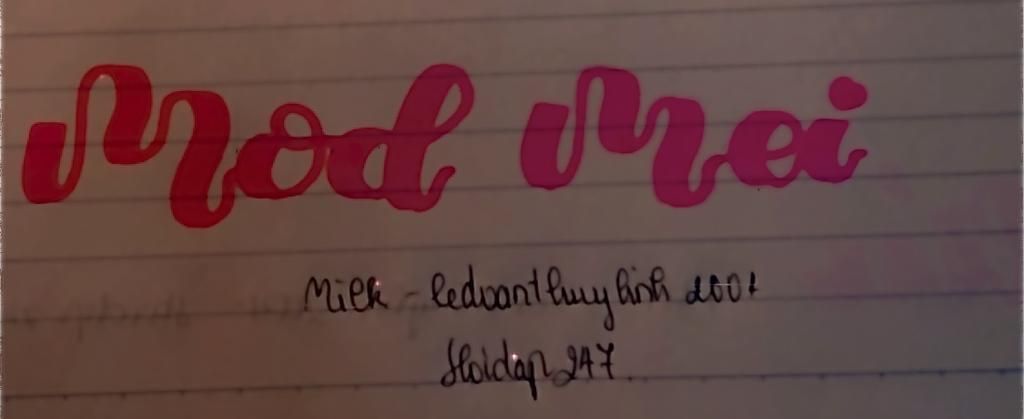 Mod Mei
Milk - ledoanthuylinh 2001
Hoidap 247